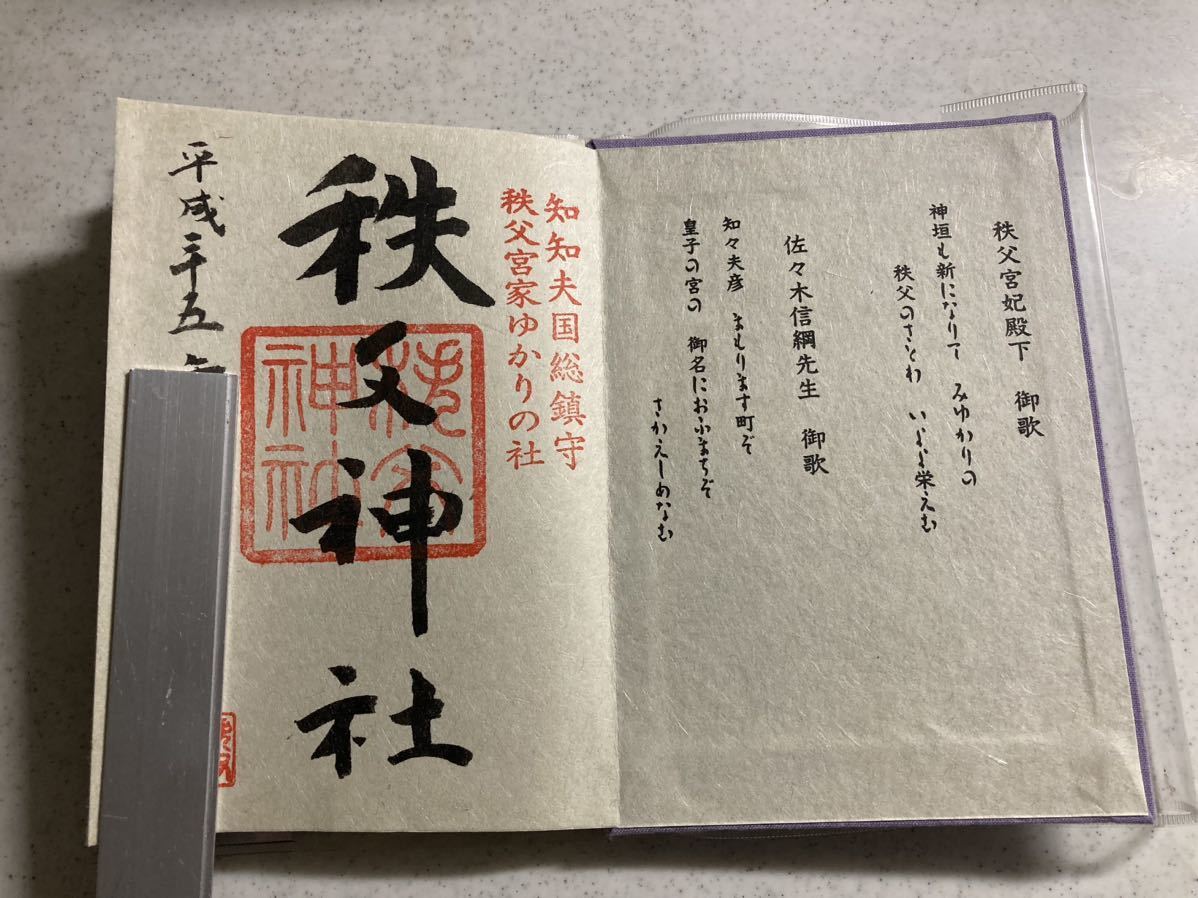 秩父宮妃殿下　御歌
神垣も新になりて　みゆかりの
秩父のさとわ　いよよ栄えむ
佐々木信綱先生　御歌
知々夫彦　まもります町ぞ
皇子の宮の　御名におふまちぞ
さかえしめなむ
知知夫国総鎮守
秩父宮家ゆかりの社
秩父神社
秩父神社
平成二十五年